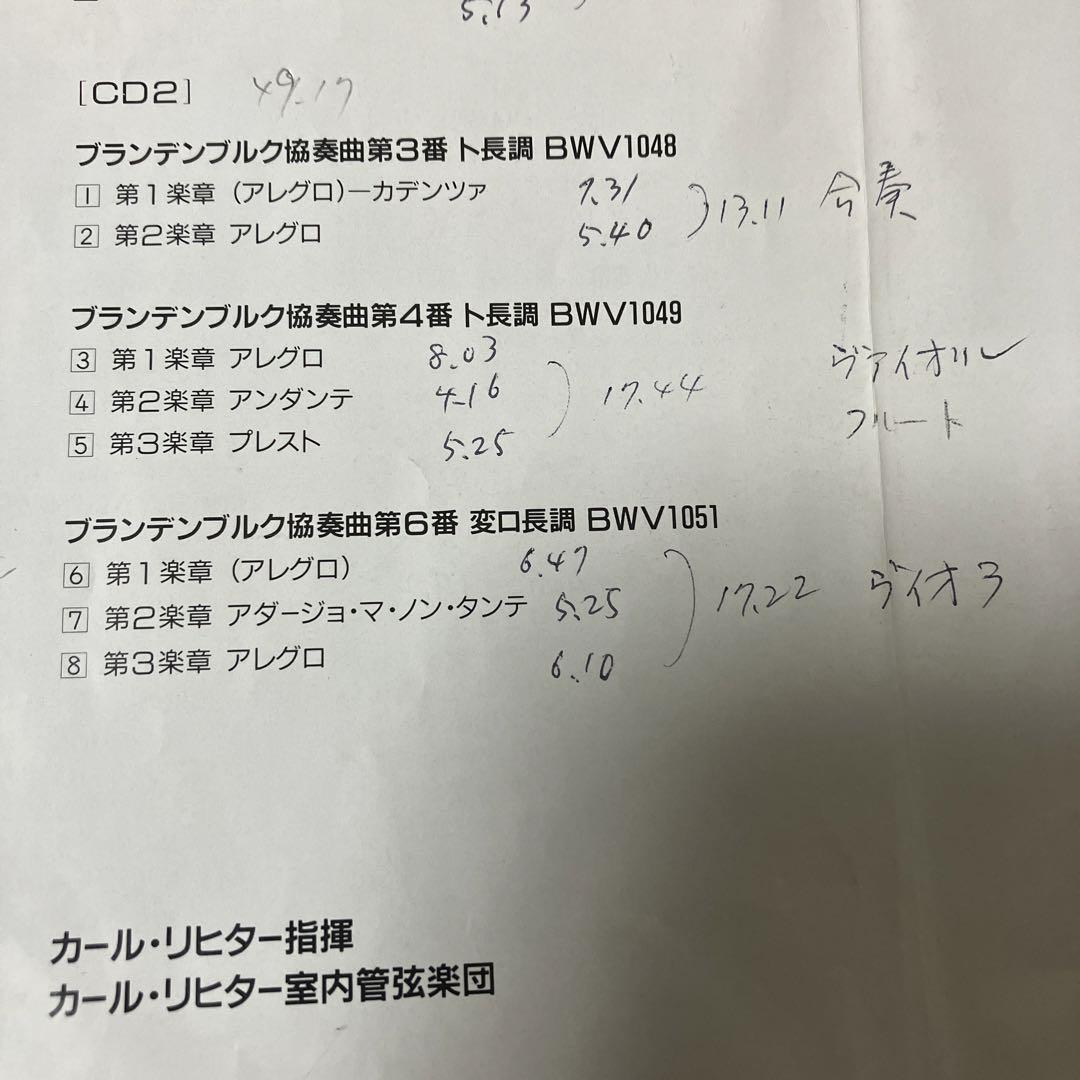 5.13
[CD2] 49.17
ブランデンブルク協奏曲第3番 ト長調 BWV1048
1 第1楽章 (アレグロ)ーカデンツァ 7.31
2 第2楽章 アレグロ 5.40
13.11 合奏
ブランデンブルク協奏曲第4番 ト長調 BWV1049
3 第1楽章 アレグロ 8.03
4 第2楽章 アンダンテ 4.16
5 第3楽章 プレスト 5.25
17.44 ヴァイオリン
フルート
ブランデンブルク協奏曲第6番 変ロ長調 BWV1051
6 第1楽章 (アレグロ) 6.47
7 第2楽章 アダージョ・マ・ノン・タンテ 5.25
8 第3楽章 アレグロ 6.10
17.22 ヴィオラ
カール・リヒター指揮
カール・リヒター室内管弦楽団